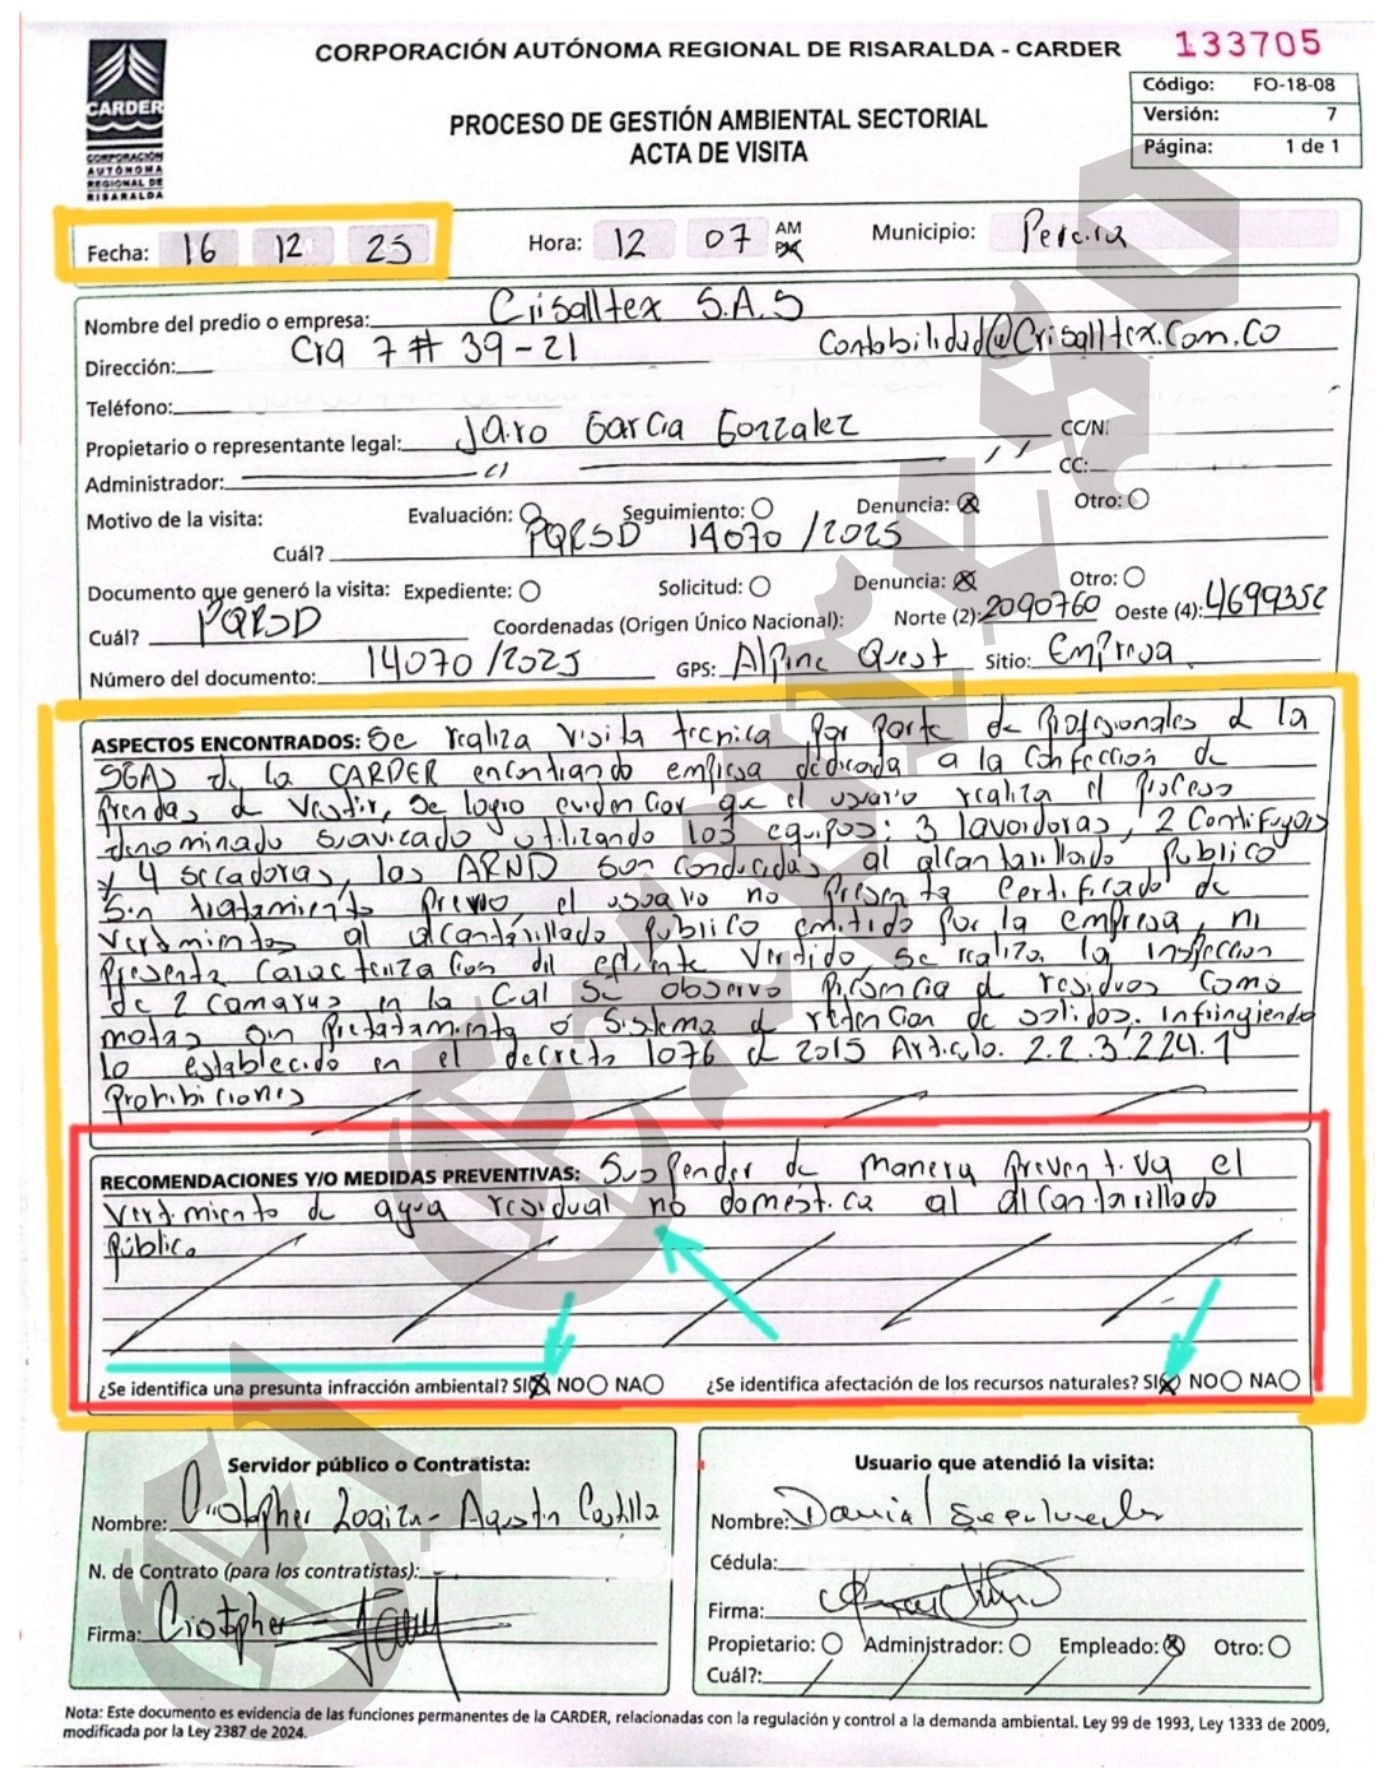 CORPORACIÓN AUTÓNOMA REGIONAL DE RISARALDA - CARDER
133705
CARDER
CORPORACIÓN
AUTÓNOMA
REGIONAL DE
RISARALDA
PROCESO DE GESTIÓN AMBIENTAL SECTORIAL
ACTA DE VISITA
Código: FO-18-08
Versión: 7
Página: 1 de 1
Fecha: 16 12 25 Hora: 12 07 AM PM Municipio: Pereira
Nombre del predio o empresa: Crisalltex S.A.S
Dirección: Cra 7 # 39-21 Contabilidad@Crisalltex.Com.Co
Teléfono:
Propietario o representante legal: Jairo Garcia Gonzalez CC/N:
Administrador: CC:
Motivo de la visita: Evaluación: Seguimiento: Denuncia: X Otro:
Cuál? PQRSD 14070 /2025
Documento que generó la visita: Expediente: Solicitud: Denuncia: X Otro:
Cuál? PQRSD Coordenadas (Origen Único Nacional): Norte (2): 2090760 Oeste (4): 4699352
Número del documento: 14070 /2025 GPS: Alpine Quest Sitio: Empresa
ASPECTOS ENCONTRADOS: Se realiza visita tecnica por parte de profesionales d la
SGAS de la CARDER encontrando empresa dedicada a la confección de
prendas d vestir, se logro evidenciar que el usuario realiza el proceso
denominado suavizado utilizando los equipos: 3 lavadoras, 2 Centifugas
y 4 secadoras, las ARND son conducidas al alcantarillado publico
sin tratamiento previo, el usuario no presenta certificado de
vertimientos al alcantarillado publico emitido por la empresa, ni
presenta caracterización del efluente vertido, se realiza la inspeccion
de 2 camaras en la cual se observo presencia d residuos como
motas sin pretatamiento ó sistema d retencion de solidos. infringiendo
lo establecido en el decreto 1076 d 2015 Articulo. 2.2.3.2.24.1
Prohibiciones
RECOMENDACIONES Y/O MEDIDAS PREVENTIVAS: Suspender de manera preventiva el
vertimiento de agua residual no domestica al alcantarillado
público
¿Se identifica una presunta infracción ambiental? SI X NO NA ¿Se identifica afectación de los recursos naturales? SI X NO NA
Servidor público o Contratista:
Nombre: Cristopher Loaiza - Agustin Castilla
N. de Contrato (para los contratistas):
Firma: Cristopher
Usuario que atendió la visita:
Nombre: Daniel Sepulveda
Cédula:
Firma:
Propietario: Administrador: Empleado: X Otro:
Cuál?:
Nota: Este documento es evidencia de las funciones permanentes de la CARDER, relacionadas con la regulación y control a la demanda ambiental. Ley 99 de 1993, Ley 1333 de 2009,
modificada por la Ley 2387 de 2024.